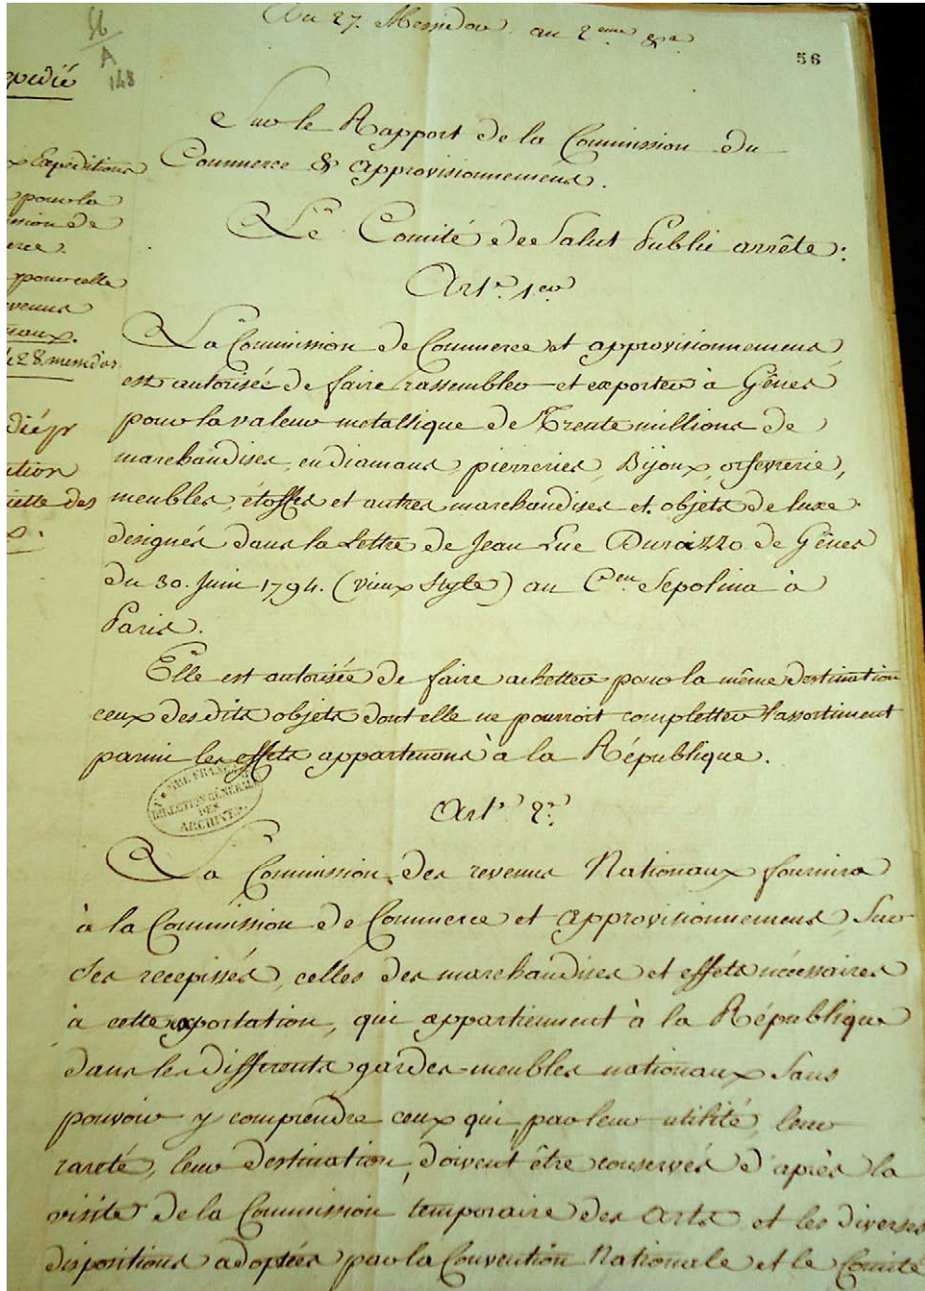 Du 27. Messidor an 2eme &a
56
A
148
56
Sur le Rapport de la Commission du
Commerce & approvisionnemens.
Le Comité de Salut Public arrête:
Art. 1er
La Commission de Commerce et approvisionnemens
est autorisée de faire rassembler et exporter à Gênes
pour la valeur metallique de Trente millions de
marchandises, en diamans, pierreries, Bijoux, orfevrerie,
meubles, étoffes et autres marchandises et objets de luxe
designés dans la Lettre de Jean Luc Durazzo de Gênes
du 30. Juin 1794. (vieux style) au Cen. Sepolina à
Paris.
Elle est autorisée de faire achetter pour la même destination
ceux des dits objets dont elle ne pourroit completter l'assortiment
parmi les effets appartenons à la République.
DIRECTION GÉNÉRALE
DES
ARCHIVES
Art. 2.
La Commission des revenus Nationaux fournira
à la Commission de Commerce et approvisionnemens Sur
Ses recepissés, celles des marchandises et effets nécessaires
à cette exportation, qui appartiennent à la République
dans les differents gardes-meubles nationaux Sans
pouvoir y comprendre ceux qui par leur utilité, leur
rareté, leur destination, doivent être conservés d'après la
visite de la Commission temporaire des arts et les diverses
dispositions adoptées par la Convention Nationale et le Comité
expeditions
pour la
pour celle
le 28 messidor